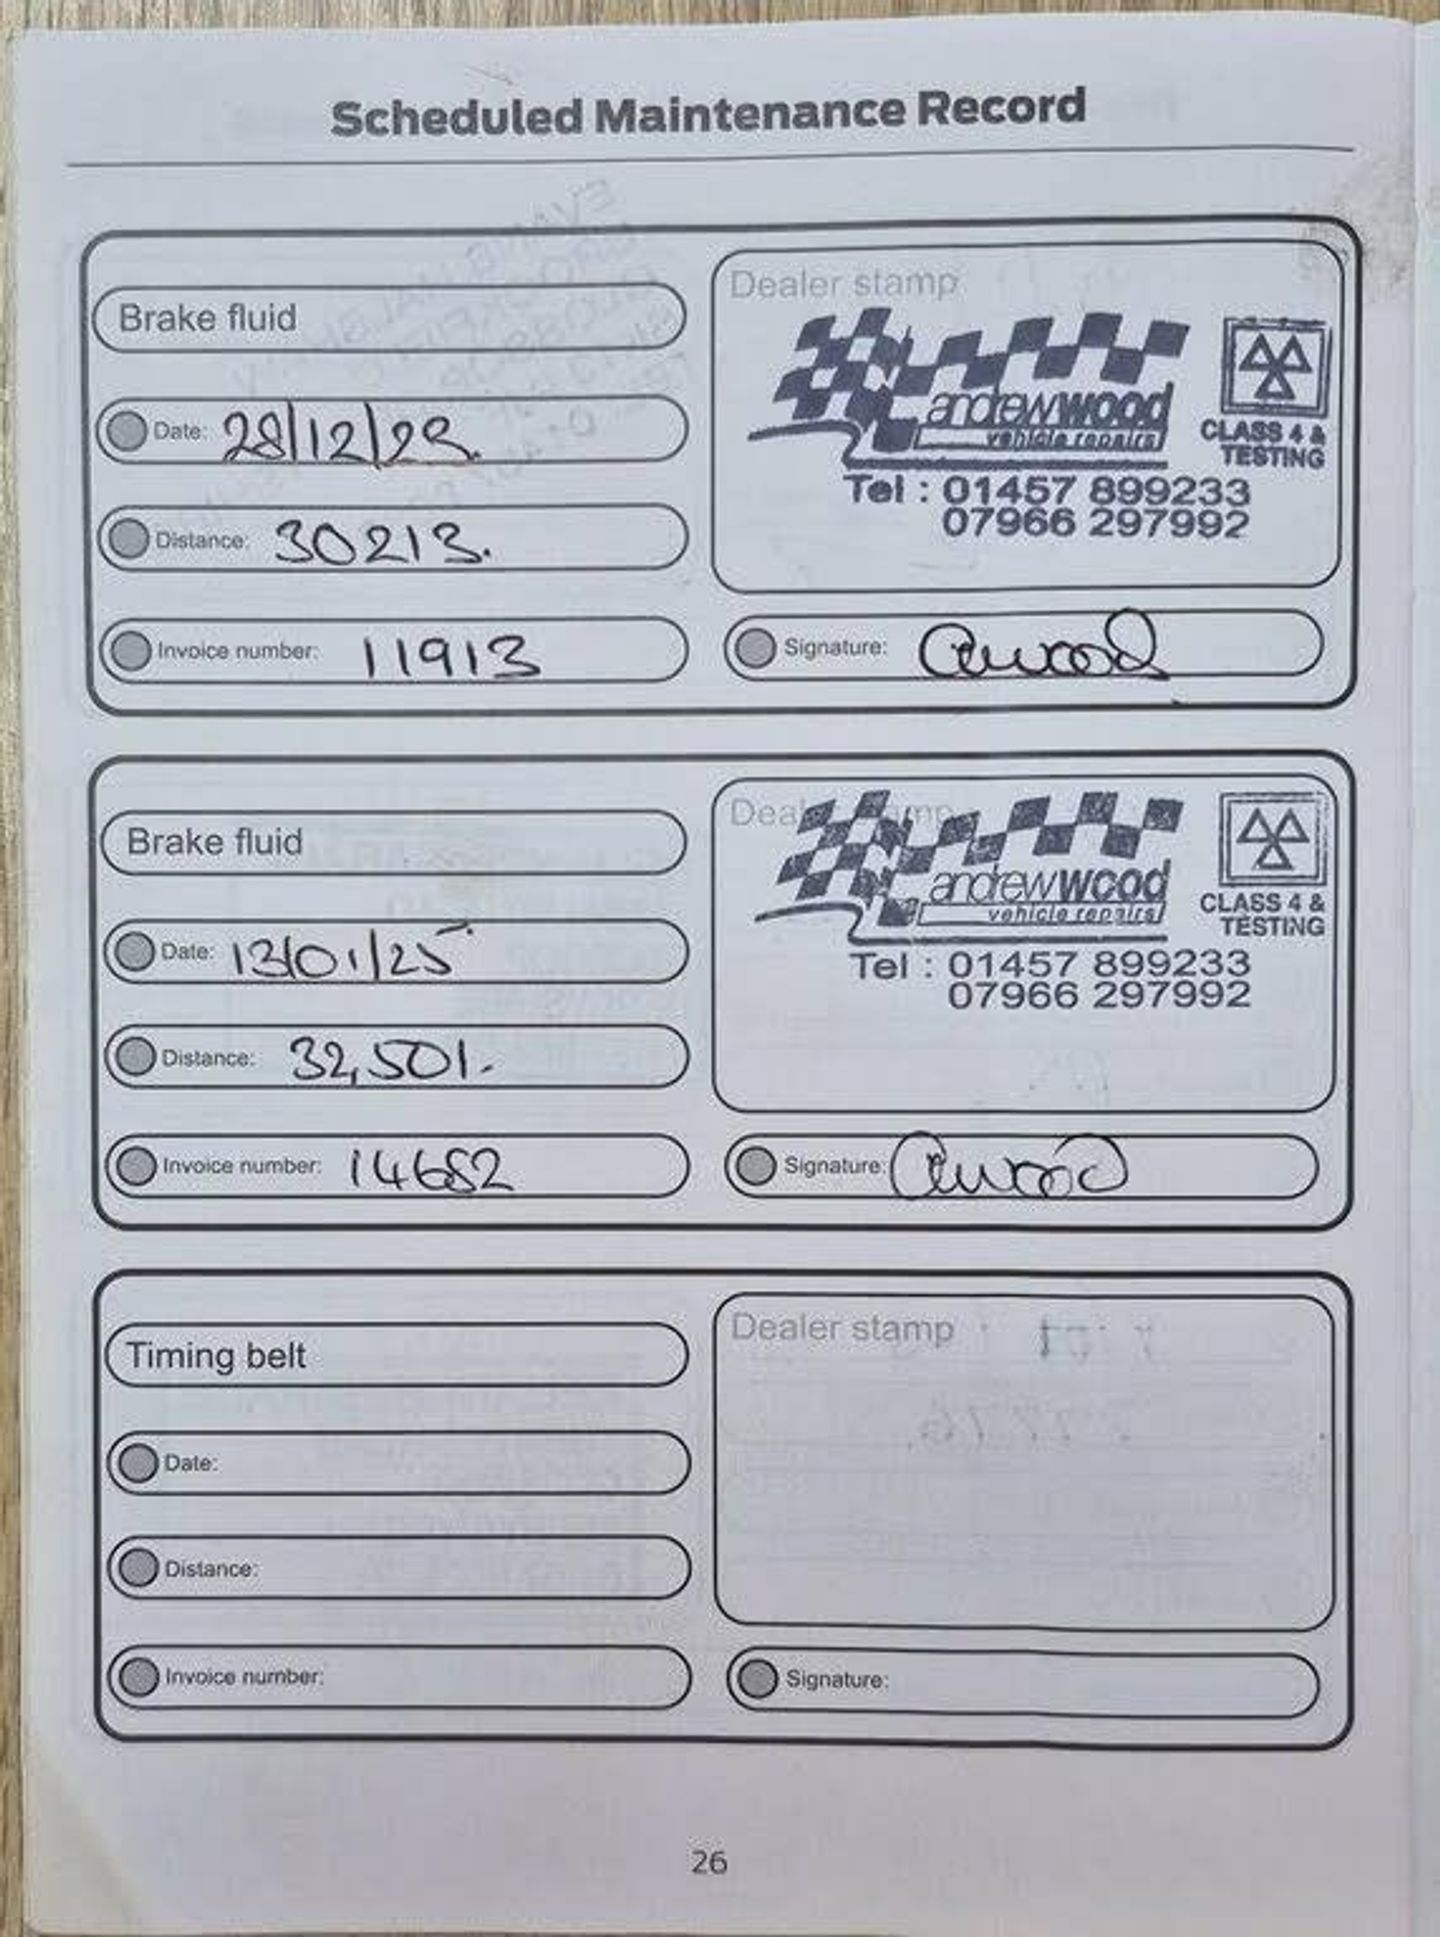 Scheduled Maintenance Record
Brake fluid
Date: 28/12/23.
Distance: 30213.
Invoice number: 11913
Dealer stamp
andrewwood
vehicle repairs
CLASS 4 &
TESTING
Tel : 01457 899233
07966 297992
Signature: awood
Brake fluid
Date: 13/01/25
Distance: 32,501.
Invoice number: 14652
Dealer stamp
andrewwood
vehicle repairs
CLASS 4 &
TESTING
Tel : 01457 899233
07966 297992
Signature: awood
Timing belt
Date:
Distance:
Invoice number:
Dealer stamp
Signature:
26